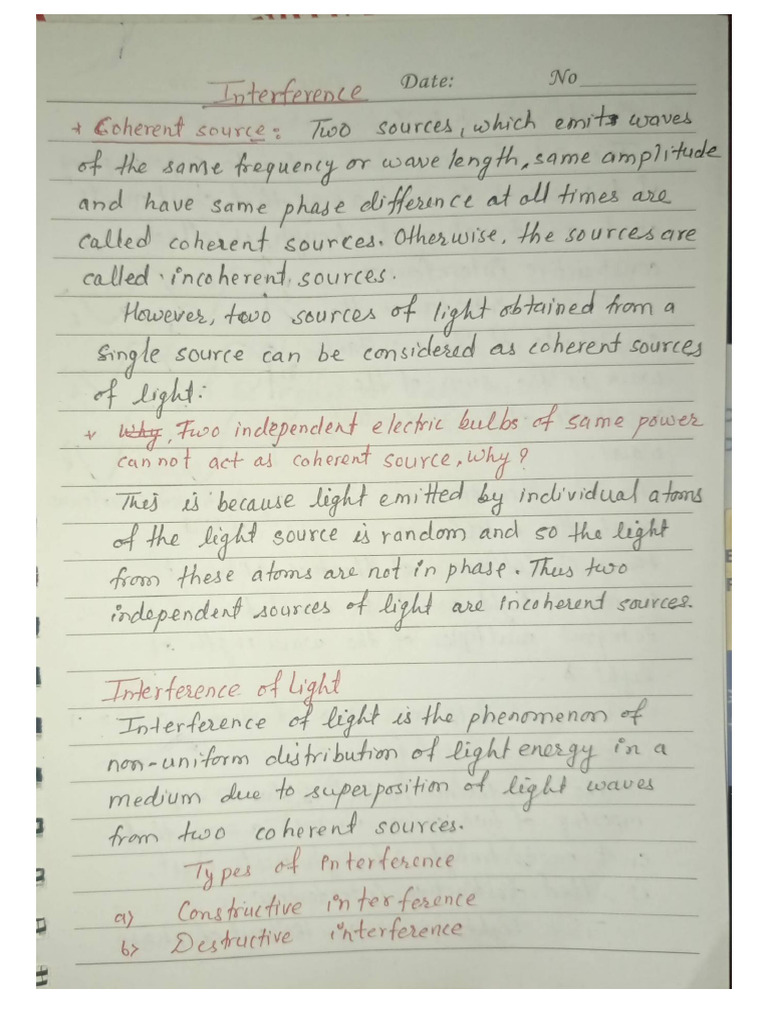 Interference Date: No
* Coherent source: Two sources, which emits waves
of the same frequency or wave length, same amplitude
and have same phase difference at all times are
called coherent sources. Otherwise, the sources are
called incoherent sources.
However, two sources of light obtained from a
single source can be considered as coherent sources
of light:
* Why, Two independent electric bulbs of same power
can not act as coherent source, why?
This is because light emitted by individual atoms
of the light source is random and so the light
from these atoms are not in phase. Thus two
independent sources of light are incoherent sources.
Interference of Light
Interference of light is the phenomenon of
non-uniform distribution of light energy in a
medium due to superposition of light waves
from two coherent sources.
Types of Interference
a) Constructive interference
b) Destructive interference